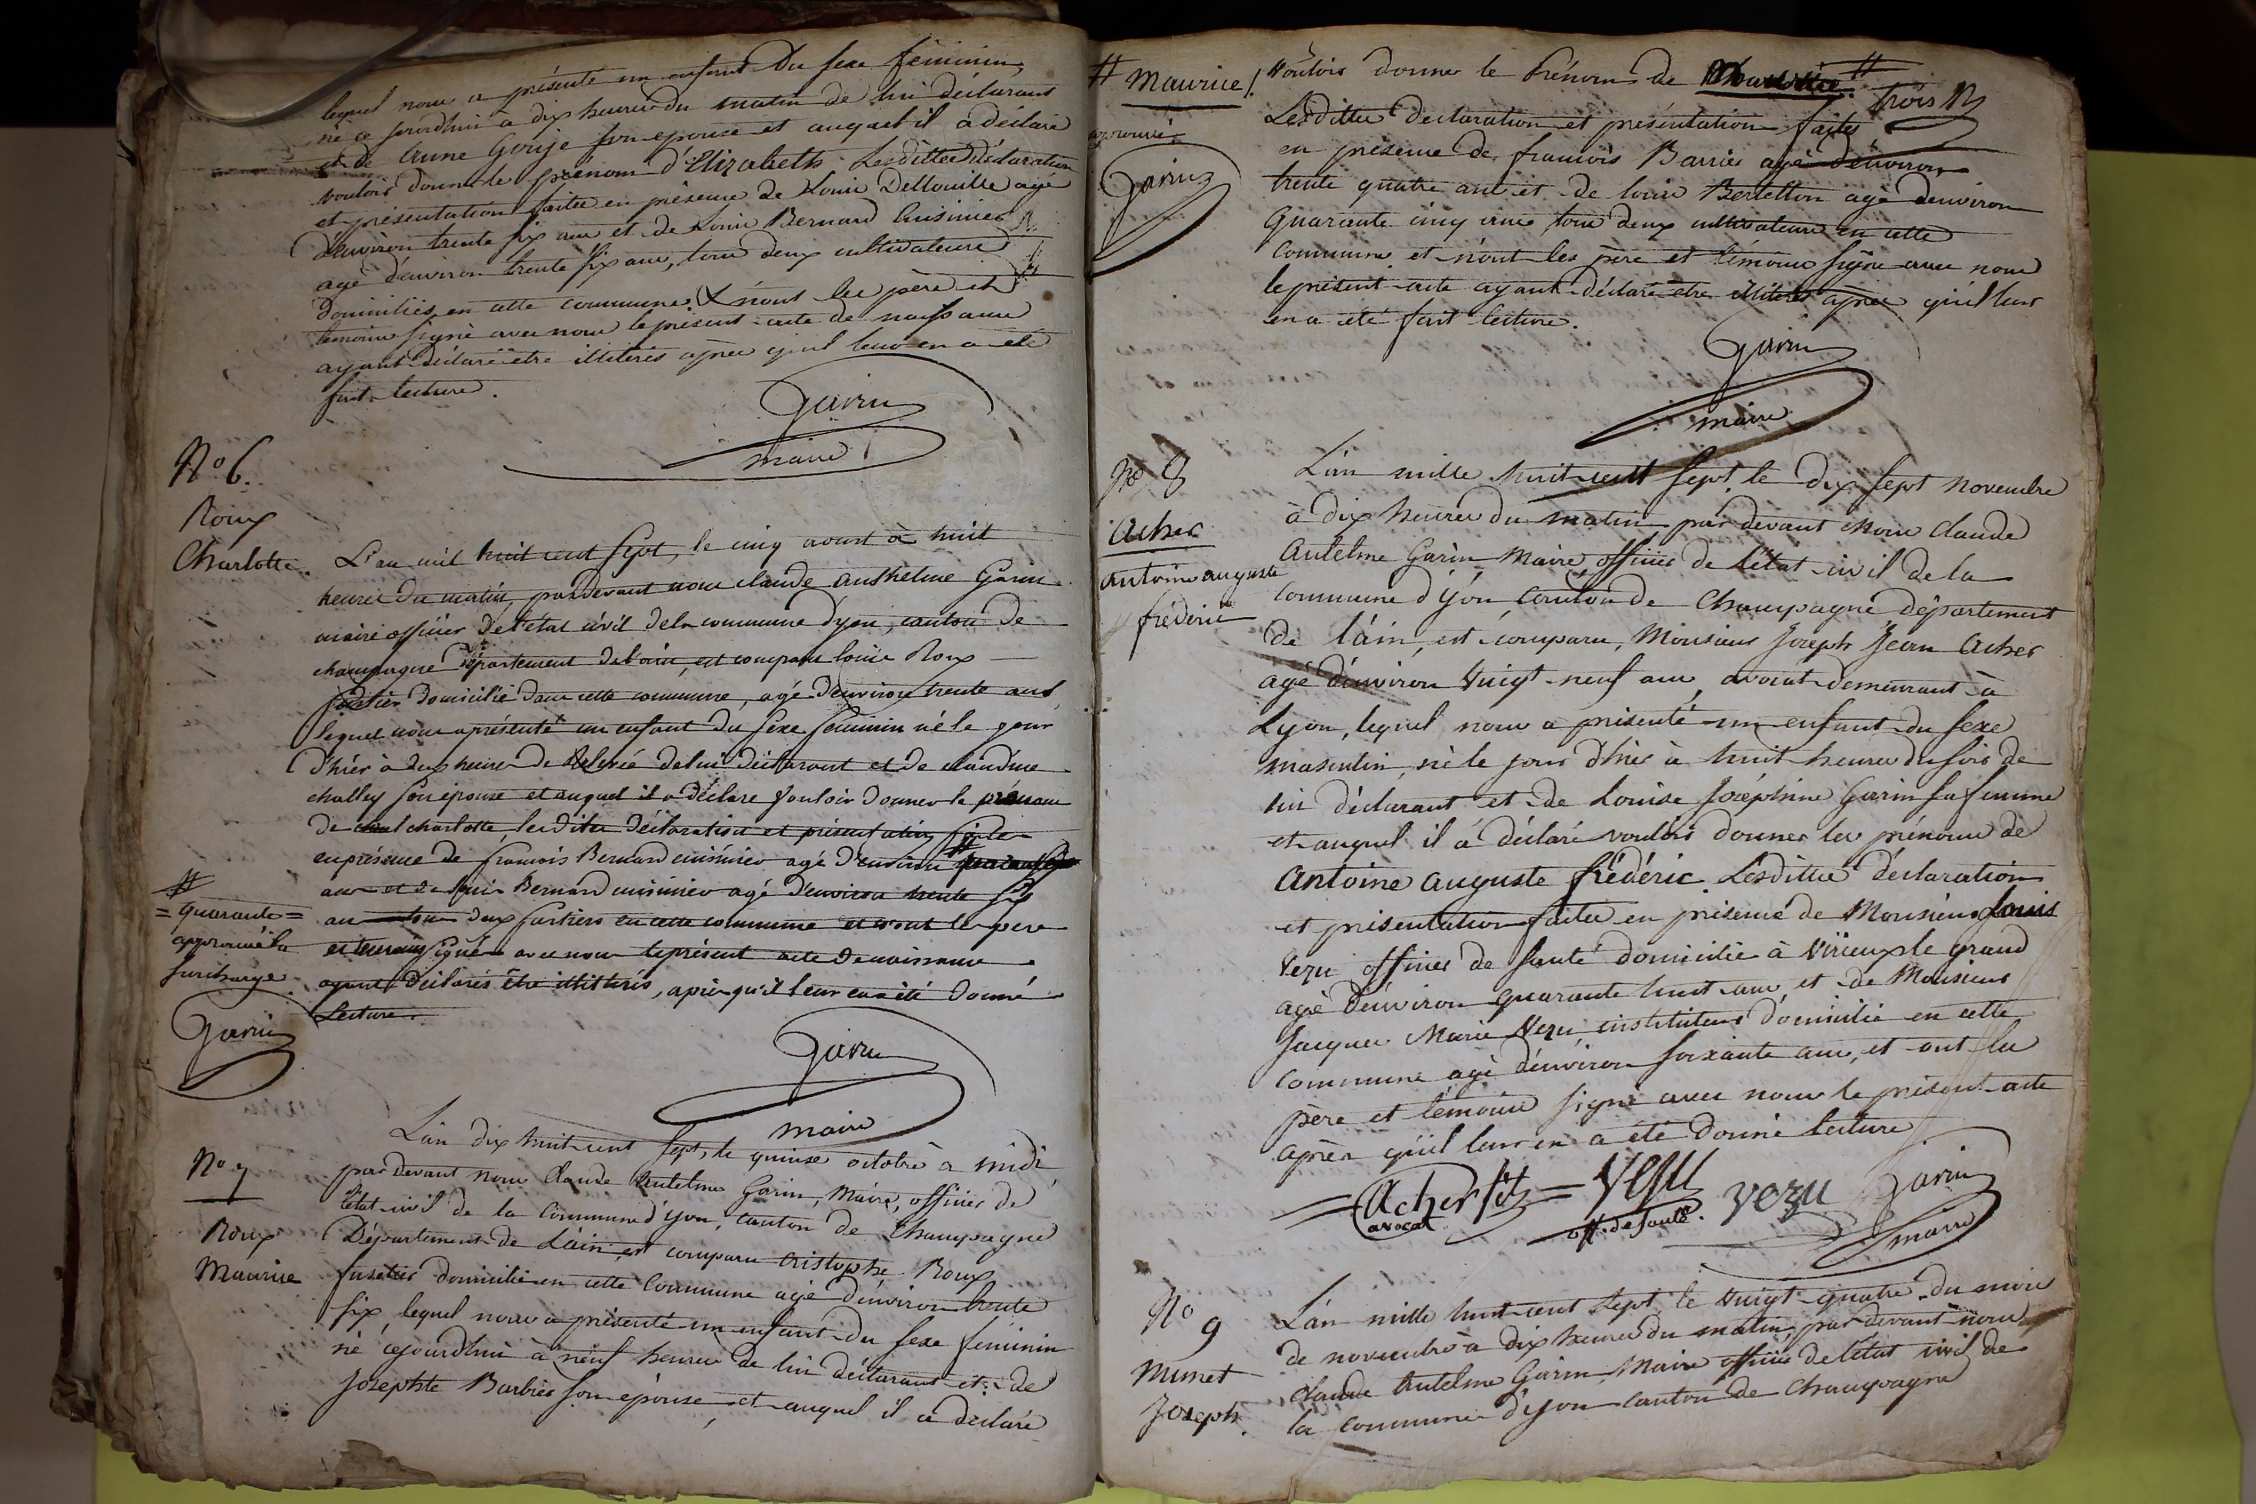 lequel nous a présenté un enfant du sexe féminin,
né ce jourdhui à dix heures du matin de lui déclarant
et de Anne Gonje son epouse et auquel il a déclaré
vouloir donner le prénom d'Elizabeth. Lesdittes déclaration
et présentation faites en présence de Louis Dellouille agé
d'environ trente six ans et de Louis Bernard Cuisinier
agé d'environ trente six ans, tous deux cultivateurs
domiciliés en cette commune & n'ont les père et
témoins signé avec nous le présent acte de naissance
ayant déclaré etre illiterés après qu'il leur en a été
fait lecture.
Garin
maire
N° 6.
Roux
Charlotte.
L'an mil huit cent sept, le cinq aoust à huit
heures du matin, pardevant nous claude anthelme Garin
maire officier de l'etat civil de la commune d'yon, canton de
champagne département de l'ain, est comparu louis Roux
domicilié dans cette commune, agé d'environ trente ans,
lequel nous a présenté un enfant du sexe feminin né le jour
d'hier à deux heures de Relevée de lui déclarant et de claudine
challey son épouse et auquel il a déclare vouloir donner le prenom
de charlotte lesdites déclaration et présentation
en présence de françois Bernard cuisinier agé d'environ
ans et de louis Bernard cuisinier agé d'environ trente six
ans tous deux en cette commune et n'ont le pere
et temoins signés avec nous le présent acte de naissance
ayant déclarés être illitérés, après qu'il leur en a été donné
Lecture.
#
= quarante =
approuvé la
surcharge.
Garin
Garin
maire
N° 7
Roux
Maurice
L'an dix huit cent sept, le quinze octobre à midi
par devant nous Claude Antelme Garin, Maire, officier de
l'état-civil de la Commune d'yon, canton de Champagne
Département de L'ain, est comparu Cristophe Roux
domicilié en cette Commune agé d'environ trente
six, lequel nous a présenté un enfant du sexe féminin
né cejourdhui à neuf heures de lui déclarant et de
Josephte Barbier son épouse et auquel il a déclaré
# Maurice /.
approuvé
Garin
vouloir donner le Prénom de #
trois
Lesdittes déclaration et présentation faites
en présence de françois Barrier agé d'environ
trente quatre ans et de louis Berthelon agé d'environ
quarante cinq ans tous deux cultivateurs en cette
Commune et n'ont les père et témoins signé avec nous
le présent acte ayant déclaré etre illiterés après qu'il leur
en a été fait lecture.
Garin
maire
N° 8
Acher
Antoine auguste
frédéric
L'an mille huit cent sept le dix sept novembre
à dix heures du matin par devant Nous Claude
Antelme Garin Maire, officier de l'état-civil de la
Commune d'yon Canton de Champagne département
de l'ain, est comparu, Monsieur Joseph Jean Acher
agé d'environ vingt-neuf ans, avocat demeurant à
Lyon, lequel nous a présenté un enfant du sexe
masculin, né le jour d'hier à huit heures du soir de
lui déclarant et de Louise Joséphine Garin sa femme
et auquel il a déclaré vouloir donner les prénoms de
Antoine Auguste frédéric. Lesdittes déclaration
et présentation faites en présence de Monsieur Louis
Vezu officier de santé domicilié à Virieux le grand
agé d'environ quarante huit ans et de Monsieur
Jacques Marie Vezu instituteur domicilié en cette
Commune agé d'environ soixante ans, et ont les
père et témoins signé avec nous le présent acte
après qu'il leur en a été donné lecture
= Acher fils = Vezu vezu Garin
avocat off. de santé. maire
N° 9
Munet
Joseph.
L'an mille huit cent sept le vingt quatre du mois
de novembre à dix heures du matin, par devant nous
Claude Antelme Garin, Maire officier de l'état civil de
la commune d'yon canton de Champagne